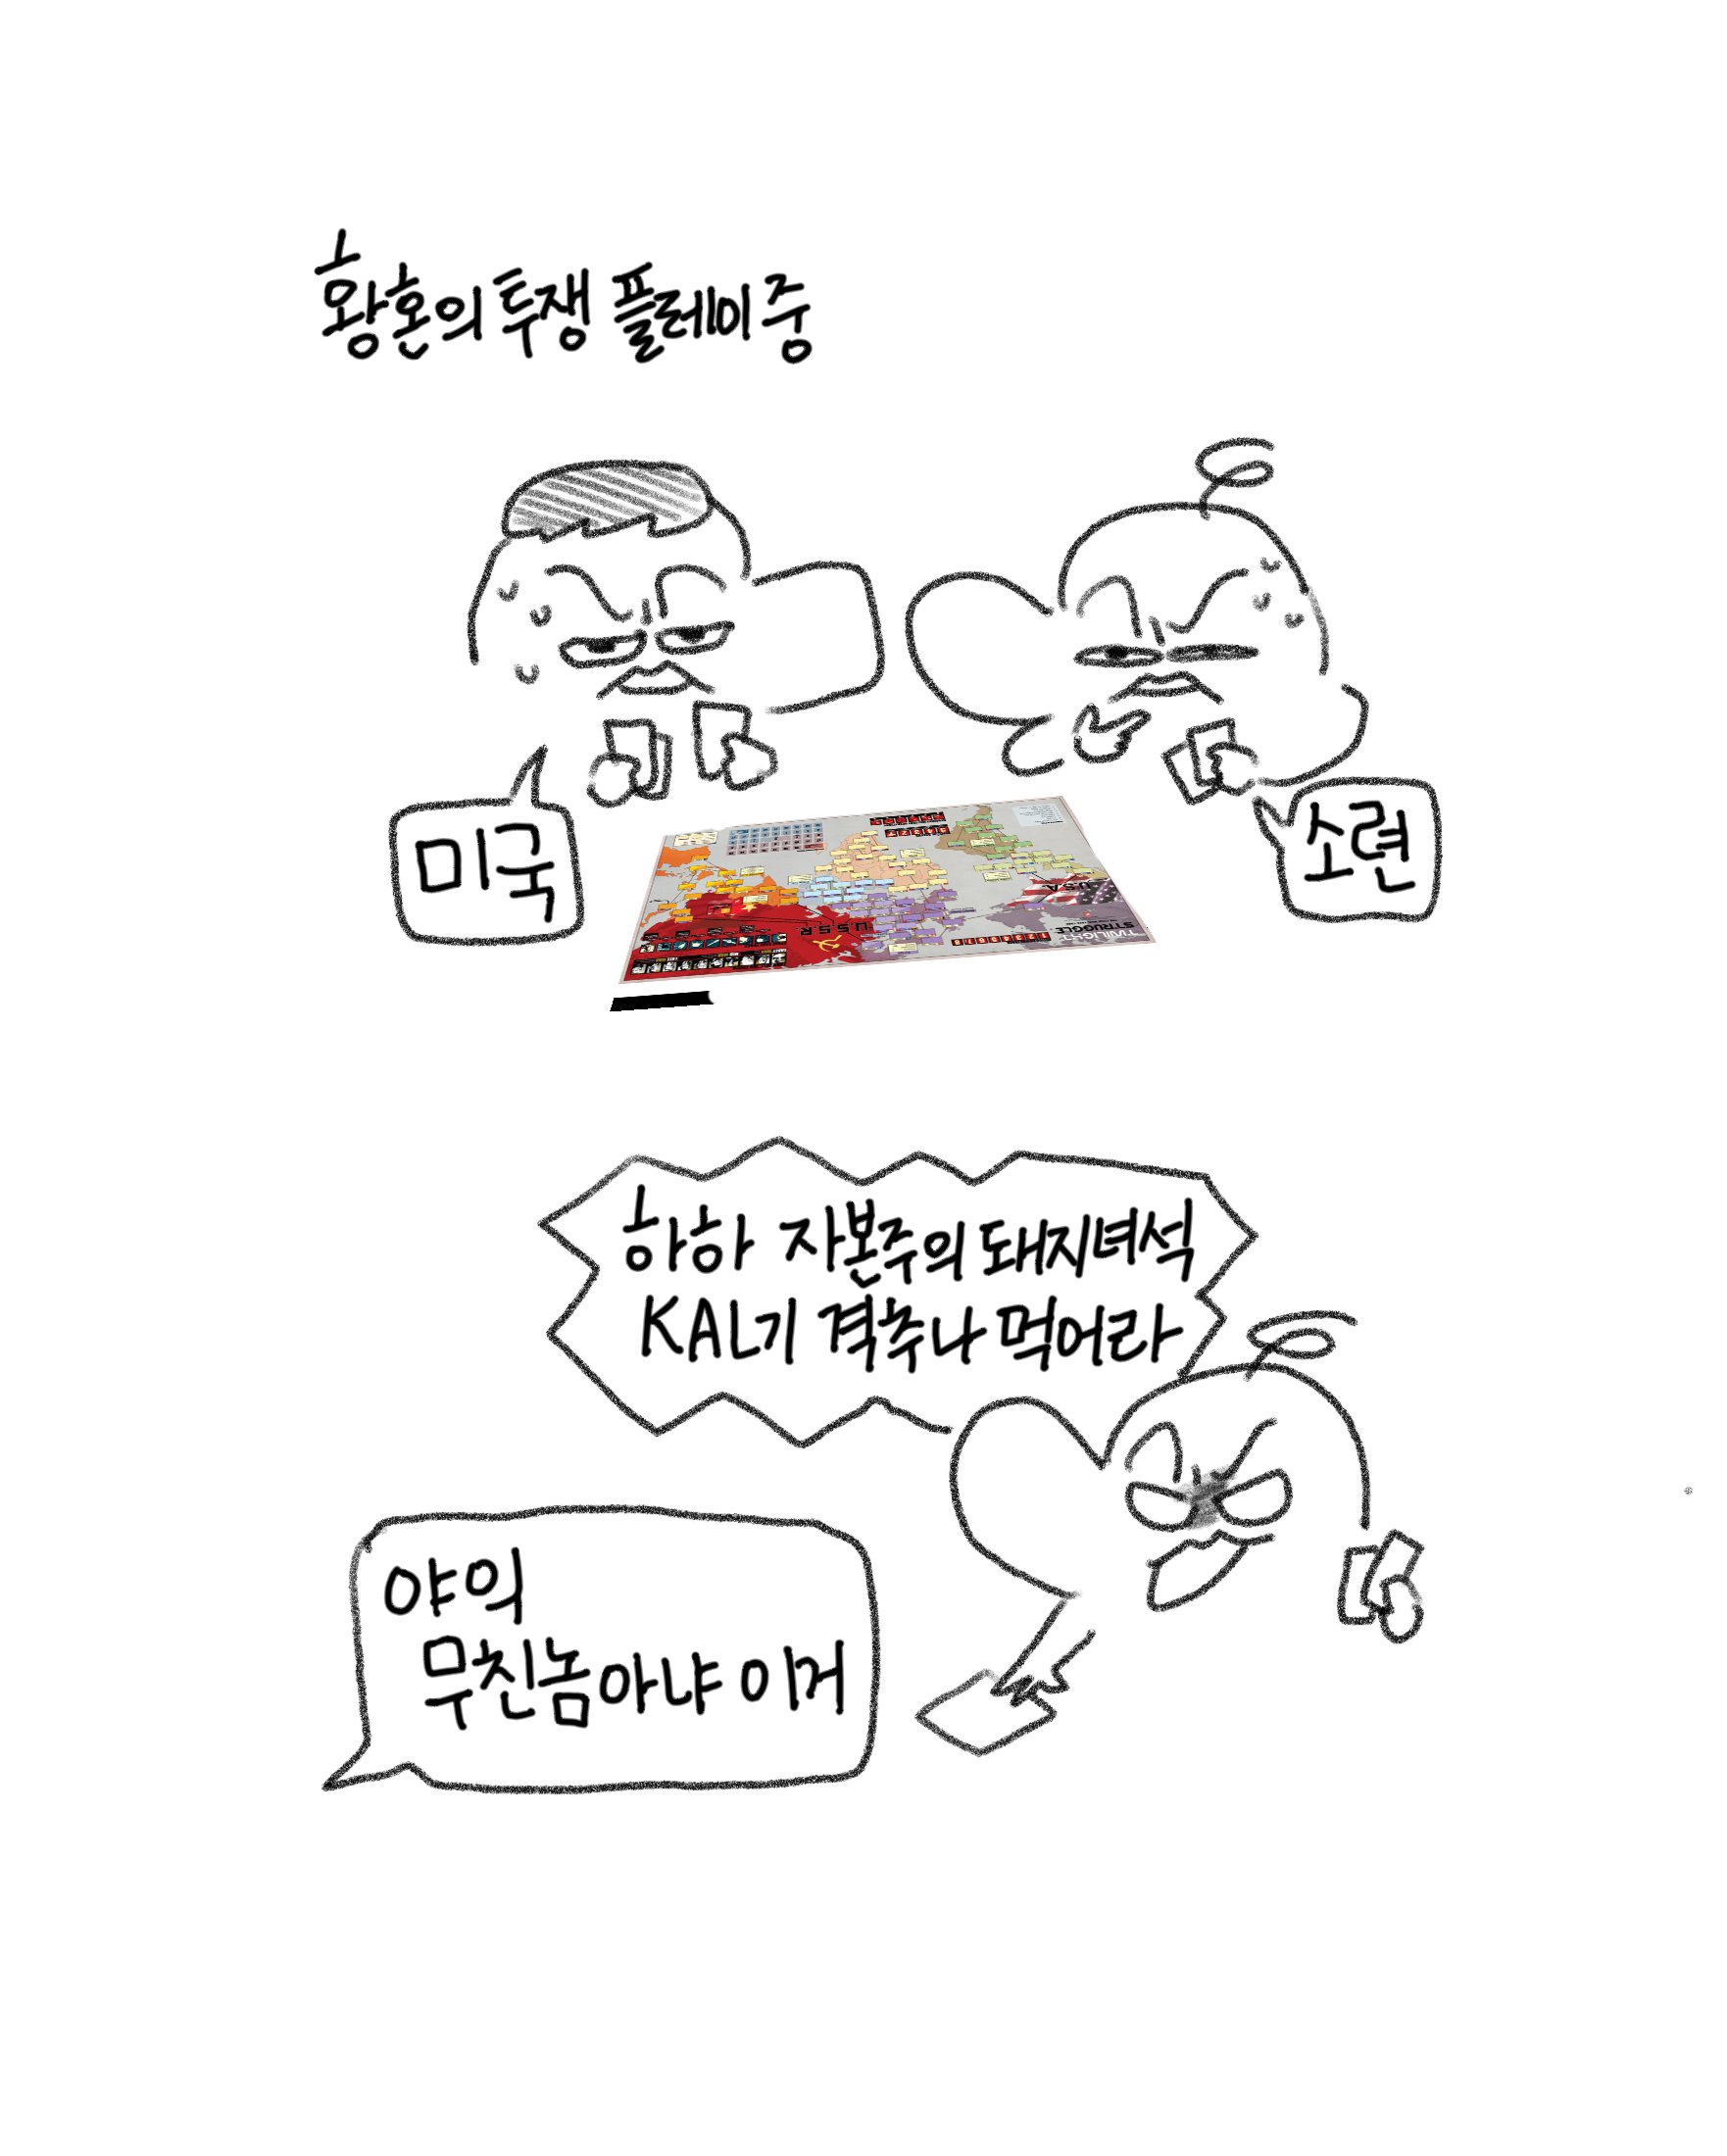 황혼의 투쟁 플레이 중
미국
소련
U.S.A.
U.S.S.R.
TWILIGHT
STRUGGLE
하하 자본주의 돼지녀석
KAL기 격추나 먹어라
야익
무친놈아냐 이거